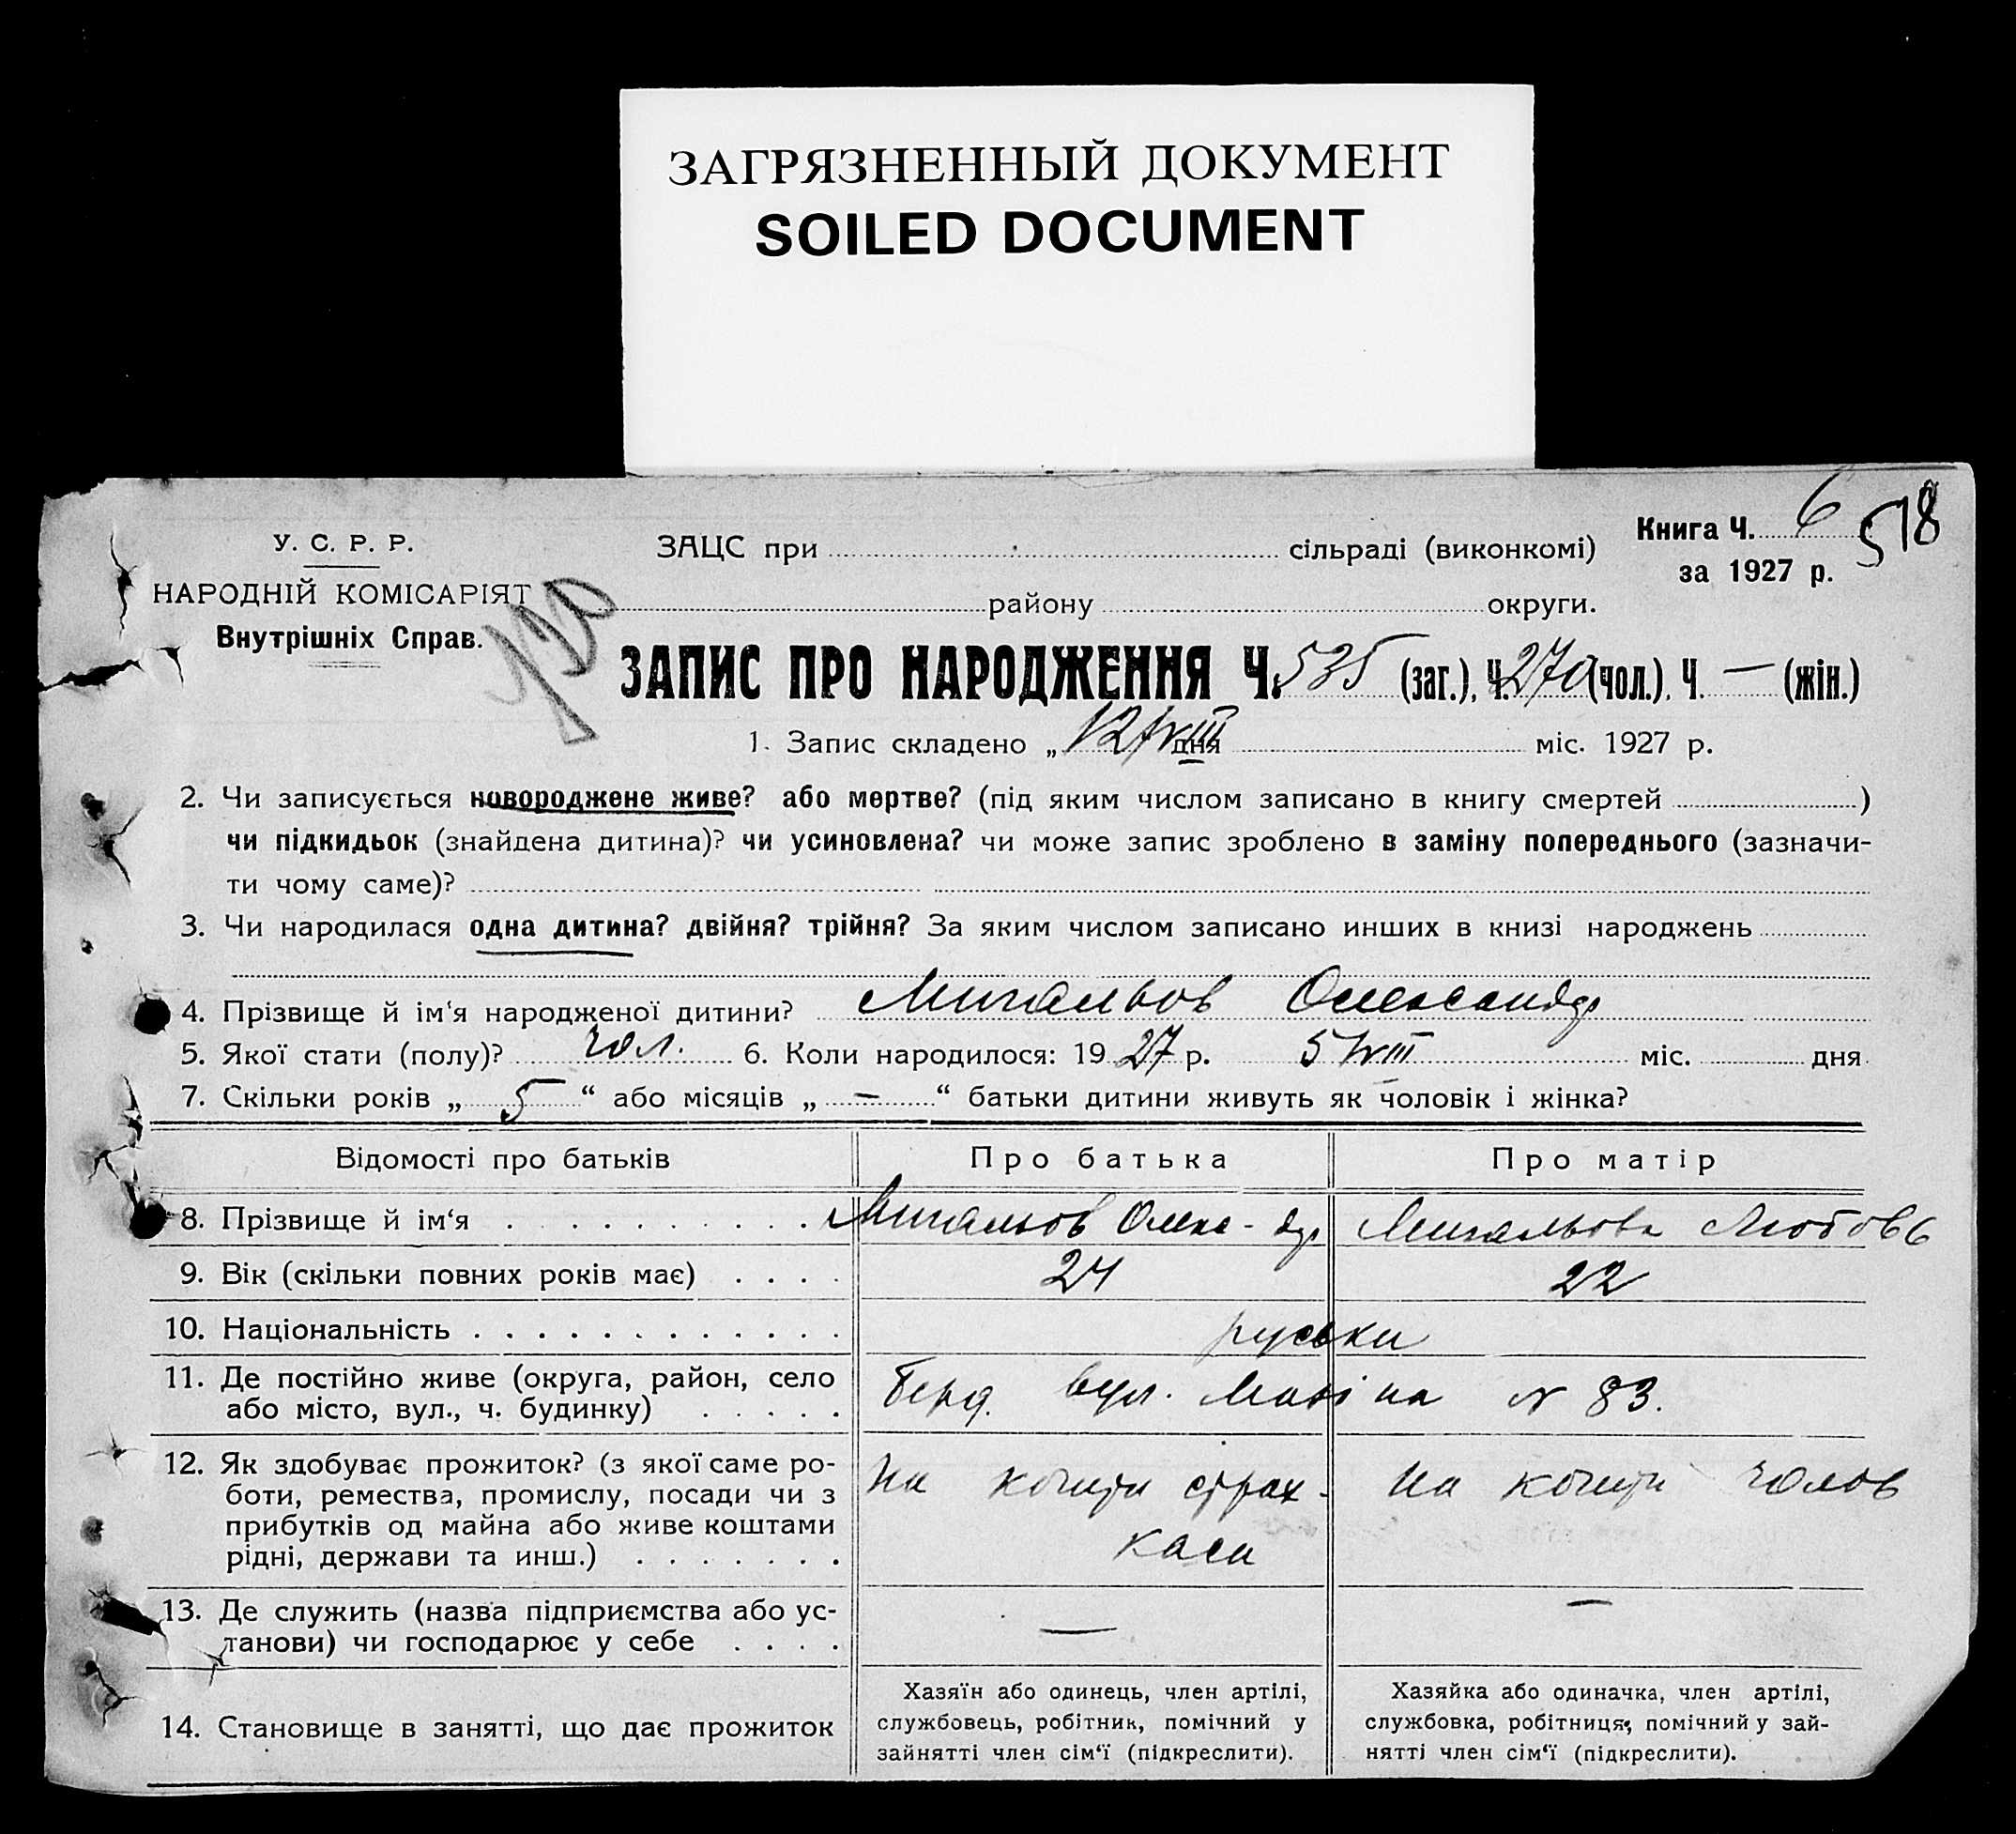 ЗАГРЯЗНЕННЫЙ ДОКУМЕНТ
SOILED DOCUMENT
У. С. Р. Р.
НАРОДНІЙ КОМІСАРІЯТ
Внутрішніх Справ.
ЗАЦС при сільраді (виконкомі)
району округи.
Книга Ч. 6 518
за 1927 р.
ЗАПИС ПРО НАРОДЖЕННЯ Ч. 535 (заг.), Ч. 270 (чол.), Ч. — (жін.)
1. Запис складено „ 12/VIII дня міс. 1927 р.
2. Чи записується новороджене живе? або мертве? (під яким числом записано в книгу смертей )
чи підкидьок (знайдена дитина)? чи усиновлена? чи може запис зроблено в заміну попереднього (зазначи-
ти чому саме)?
3. Чи народилася одна дитина? двійня? трійня? За яким числом записано инших в книзі народжень
4. Прізвище й ім‘я народженої дитини? Олександр
5. Якої стати (полу)? чол. 6. Коли народилося: 19 27 р. 5/VIII міс. дня
7. Скільки років „ 5 “ або місяців „ — “ батьки дитини живуть як чоловік і жінка?
Відомості про батьків Про батька Про матір
8. Прізвище й ім‘я Олекс-др Любовь
9. Вік (скільки повних років має) 24 22
10. Національність руськи
11. Де постійно живе (округа, район, село
або місто, вул., ч. будинку)
Берд. вул. N 83.
12. Як здобуває прожиток? (з якої саме ро-
боти, ремества, промислу, посади чи з
прибутків од майна або живе коштами
рідні, держави та инш.)
на кошти страх.
каси
на кошти чолов
13. Де служить (назва підприємства або ус-
танови) чи господарює у себе — —
14. Становище в занятті, що дає прожиток
Хазяїн або одинець, член артілі,
службовець, робітник, помічний у
зайнятті член сім‘ї (підкреслити).
Хазяйка або одиначка, член артілі,
службовка, робітниця, помічний у зай-
нятті член сім‘ї (підкреслити).